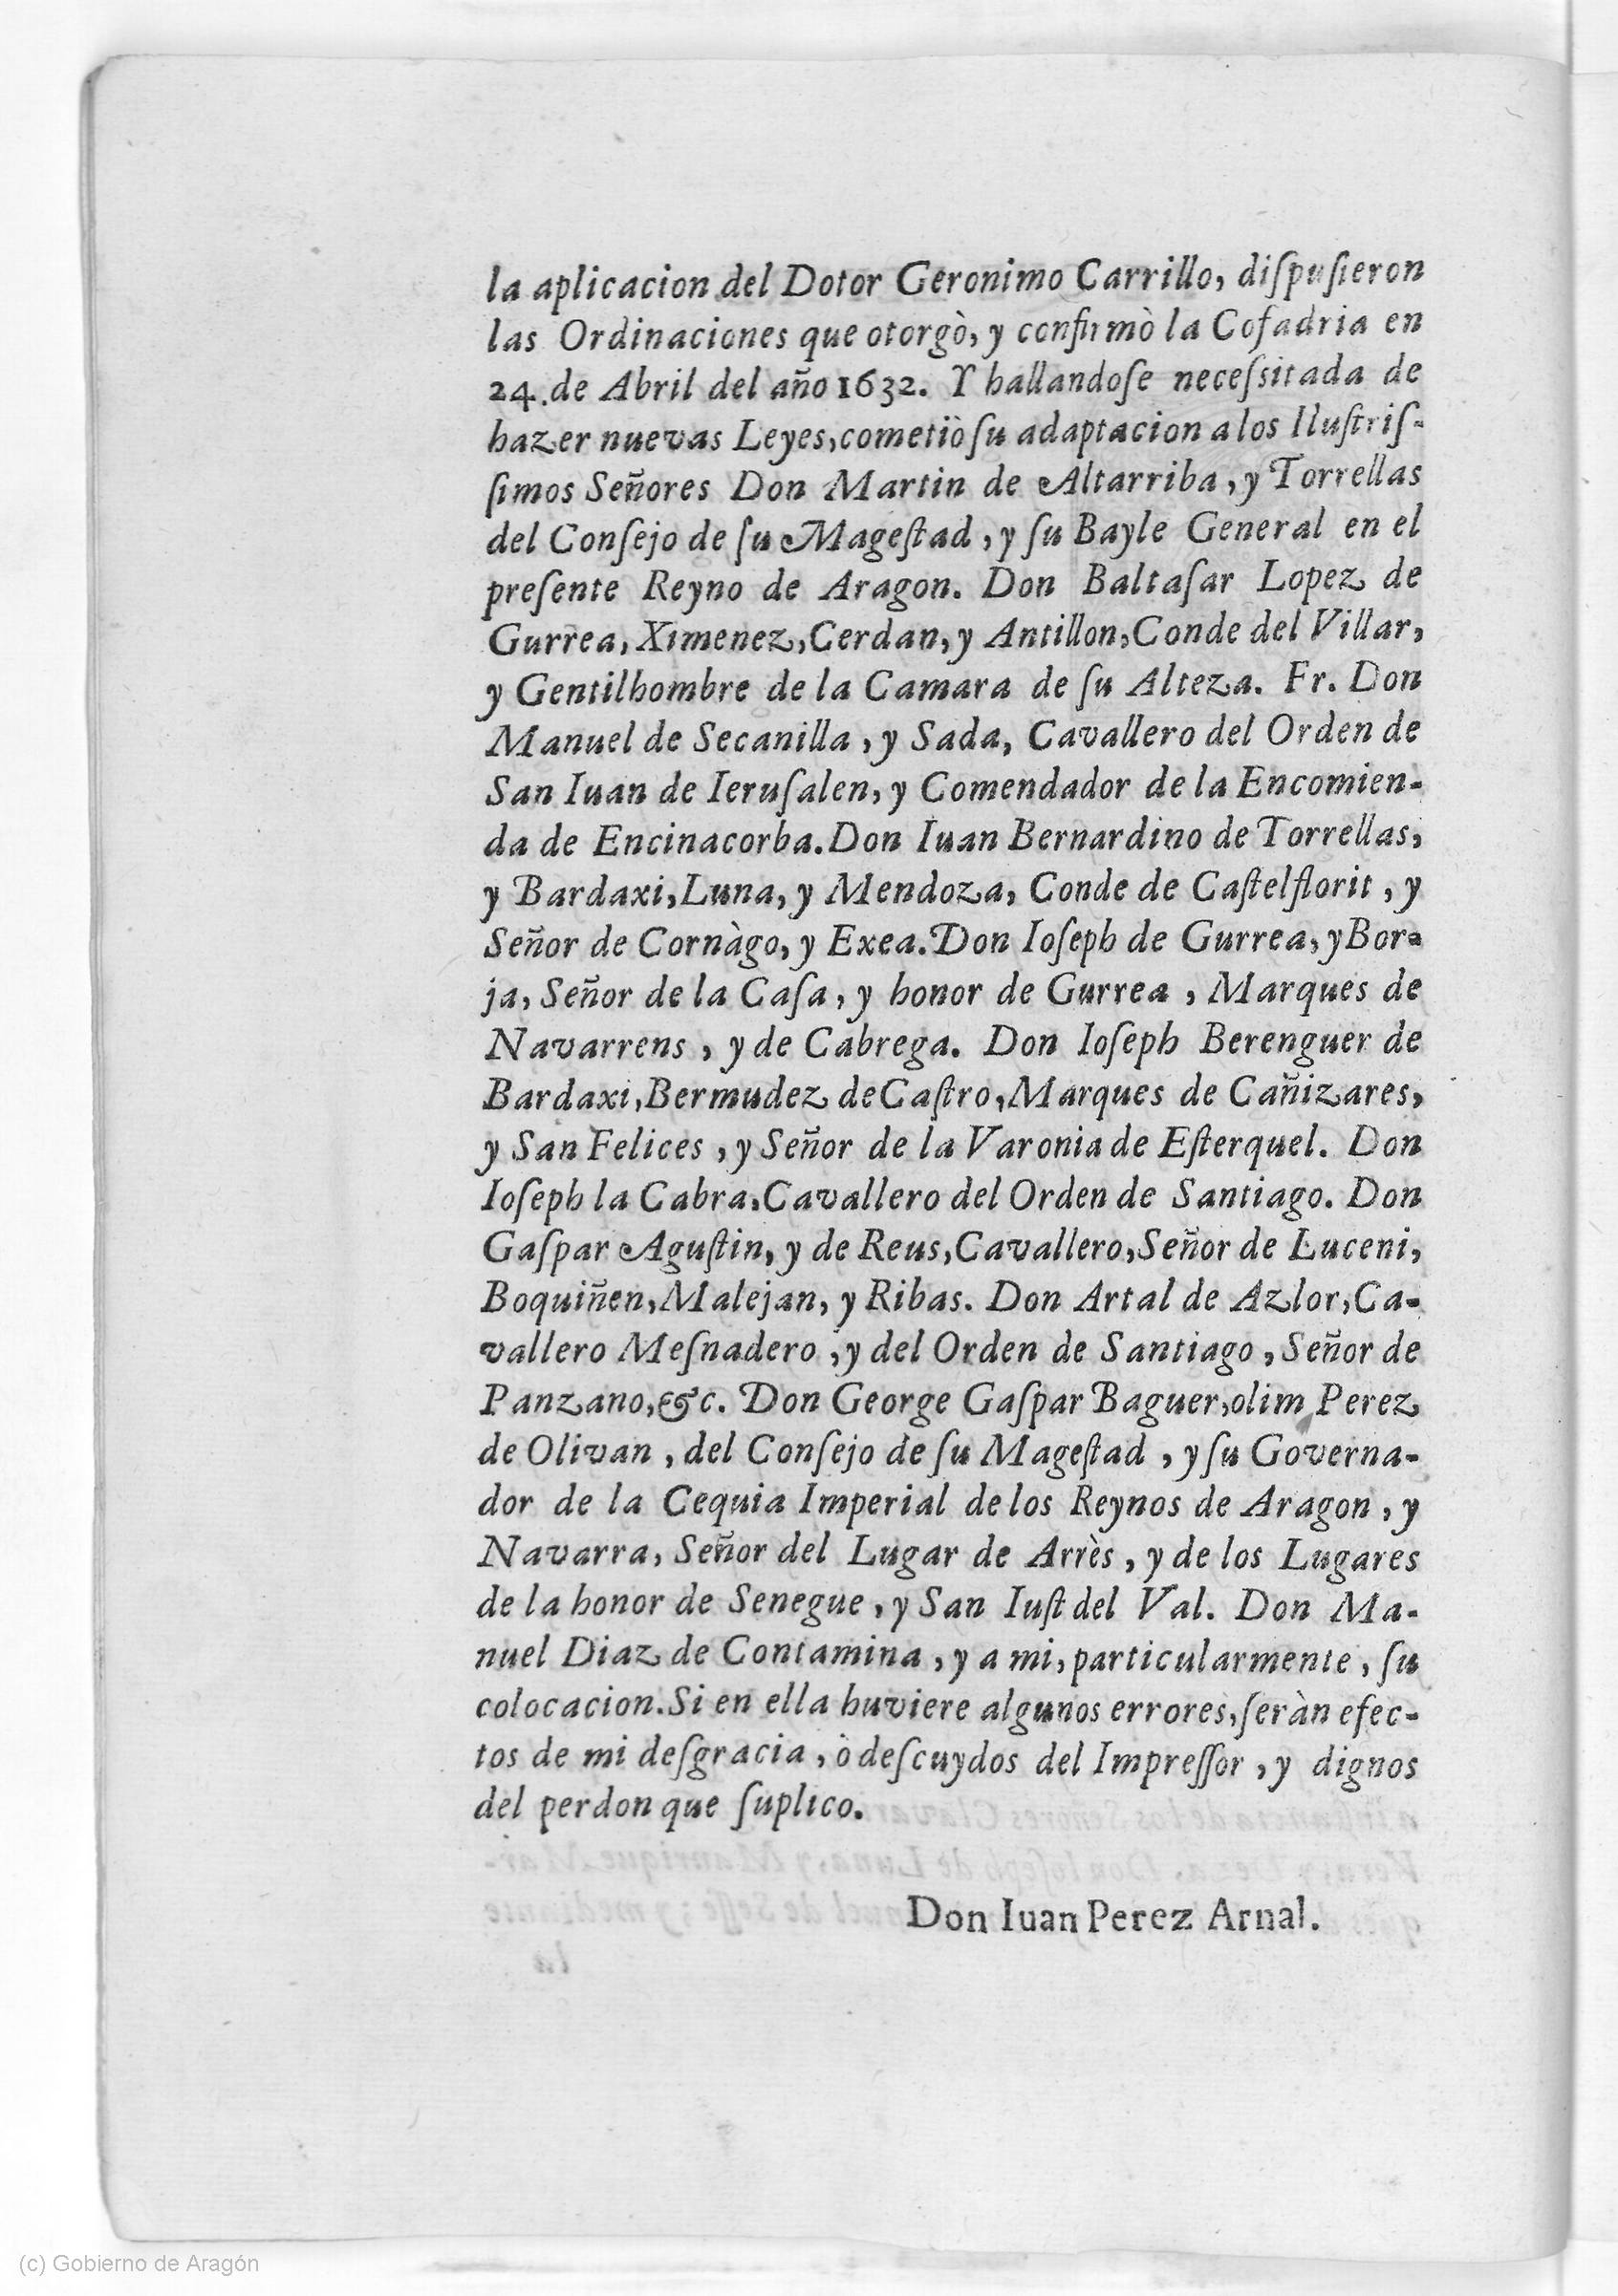 la aplicacion del Dotor Geronimo Carrillo, diſpuſieron
las Ordinaciones que otorgò, y confirmò la Cofadria en
24. de Abril del año 1632. Y hallandoſe neceſsitada de
hazer nuevas Leyes, cometiò ſu adaptacion a los Iluſtriſ-
ſimos Señores Don Martin de Altarriba, y Torrellas
del Conſejo de ſu Mageſtad, y ſu Bayle General en el
preſente Reyno de Aragon. Don Baltaſar Lopez de
Gurrea, Ximenez, Cerdan, y Antillon, Conde del Villar,
y Gentilhombre de la Camara de ſu Alteza. Fr. Don
Manuel de Secanilla, y Sada, Cavallero del Orden de
San Iuan de Ieruſalen, y Comendador de la Encomien-
da de Encinacorba. Don Iuan Bernardino de Torrellas,
y Bardaxi, Luna, y Mendoza, Conde de Caſtelflorit, y
Señor de Cornàgo, y Exea. Don Ioſeph de Gurrea, y Bor-
ja, Señor de la Caſa, y honor de Gurrea, Marques de
Navarrens, y de Cabrega. Don Ioſeph Berenguer de
Bardaxi, Bermudez de Caſtro, Marques de Cañizares,
y San Felices, y Señor de la Varonia de Eſterquel. Don
Ioſeph la Cabra, Cavallero del Orden de Santiago. Don
Gaſpar Aguſtin, y de Reus, Cavallero, Señor de Luceni,
Boquiñen, Malejan, y Ribas. Don Artal de Azlor, Ca-
vallero Meſnadero, y del Orden de Santiago, Señor de
Panzano, &c. Don George Gaſpar Baguer, olim Perez
de Olivan, del Conſejo de ſu Mageſtad, y ſu Governa-
dor de la Cequia Imperial de los Reynos de Aragon, y
Navarra, Señor del Lugar de Arrès, y de los Lugares
de la honor de Senegue, y San Iuſt del Val. Don Ma-
nuel Diaz de Contamina, y a mi, particularmente, ſu
colocacion. Si en ella huviere algunos errores, ſeràn efec-
tos de mi deſgracia, ò deſcuydos del Impreſſor, y dignos
del perdon que ſuplico.
Don Iuan Perez Arnal.
(c) Gobierno de Aragón